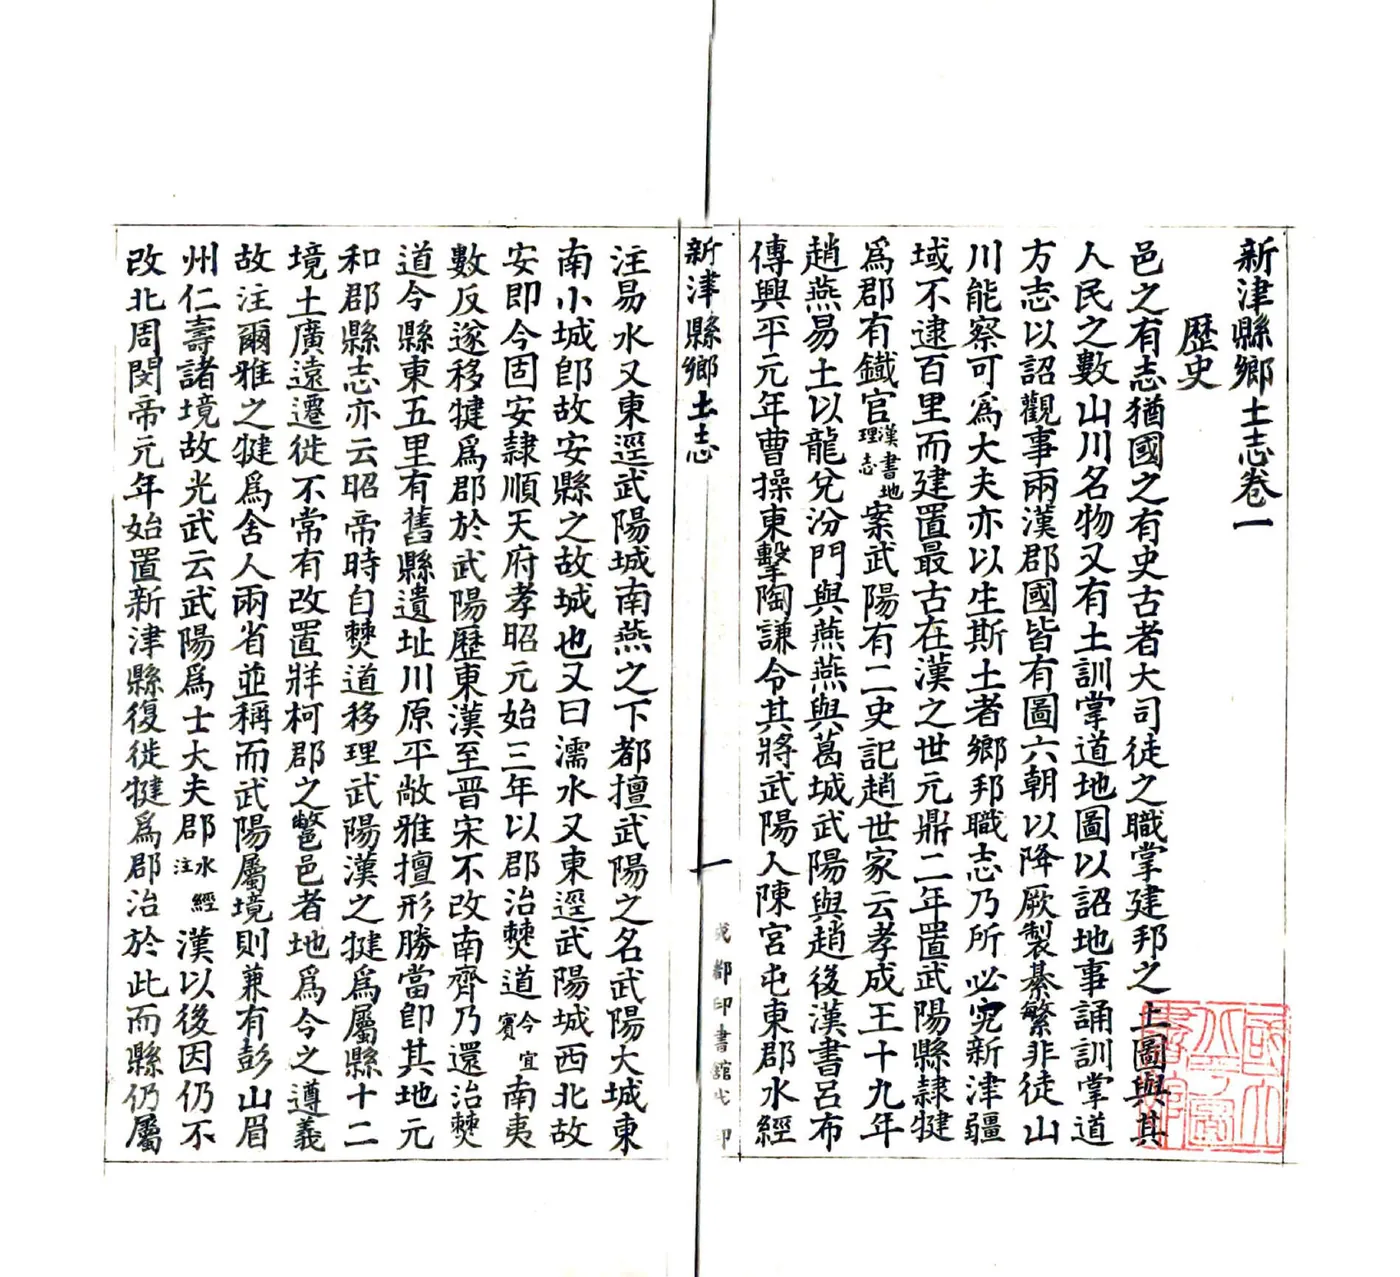 新津縣鄉土志卷一
歷史
邑之有志猶國之有史古者大司徒之職掌建邦之土圖與其
人民之數山川名物又有土訓掌道地圖以詔地事誦訓掌道
方志以詔觀事兩漢郡國皆有圖六朝以降厥製綦繁非徒山
川能察可爲大夫亦以生斯土者鄉邦職志乃所必究新津疆
域不逮百里而建置最古在漢之世元鼎二年置武陽縣隸犍
爲郡有鐵官漢書地理志案武陽有二史記趙世家云孝成王十九年
趙燕易土以龍兌汾門與燕燕與葛城武陽與趙後漢書呂布
傳興平元年曹操東擊陶謙令其將武陽人陳宮屯東郡水經
新津縣鄉土志
一
成都印書館代印
注易水又東逕武陽城南燕之下都擅武陽之名武陽大城東
南小城卽故安縣之故城也又曰濡水又東逕武陽城西北故
安即今固安隸順天府孝昭元始三年以郡治僰道今宜賓南夷
數反遂移犍爲郡於武陽歷東漢至晉宋不改南齊乃還治僰
道今縣東五里有舊縣遺址川原平敞雅擅形勝當卽其地元
和郡縣志亦云昭帝時自僰道移理武陽漢之犍爲屬縣十二
境土廣遠遷徙不常有改置牂柯郡之鄨邑者地爲今之遵義
故注爾雅之犍爲舍人兩省並稱而武陽屬境則兼有彭山眉
州仁壽諸境故光武云武陽爲士大夫郡水經注漢以後因仍不
改北周閔帝元年始置新津縣復徙犍爲郡治於此而縣仍屬
國立北平圖書館